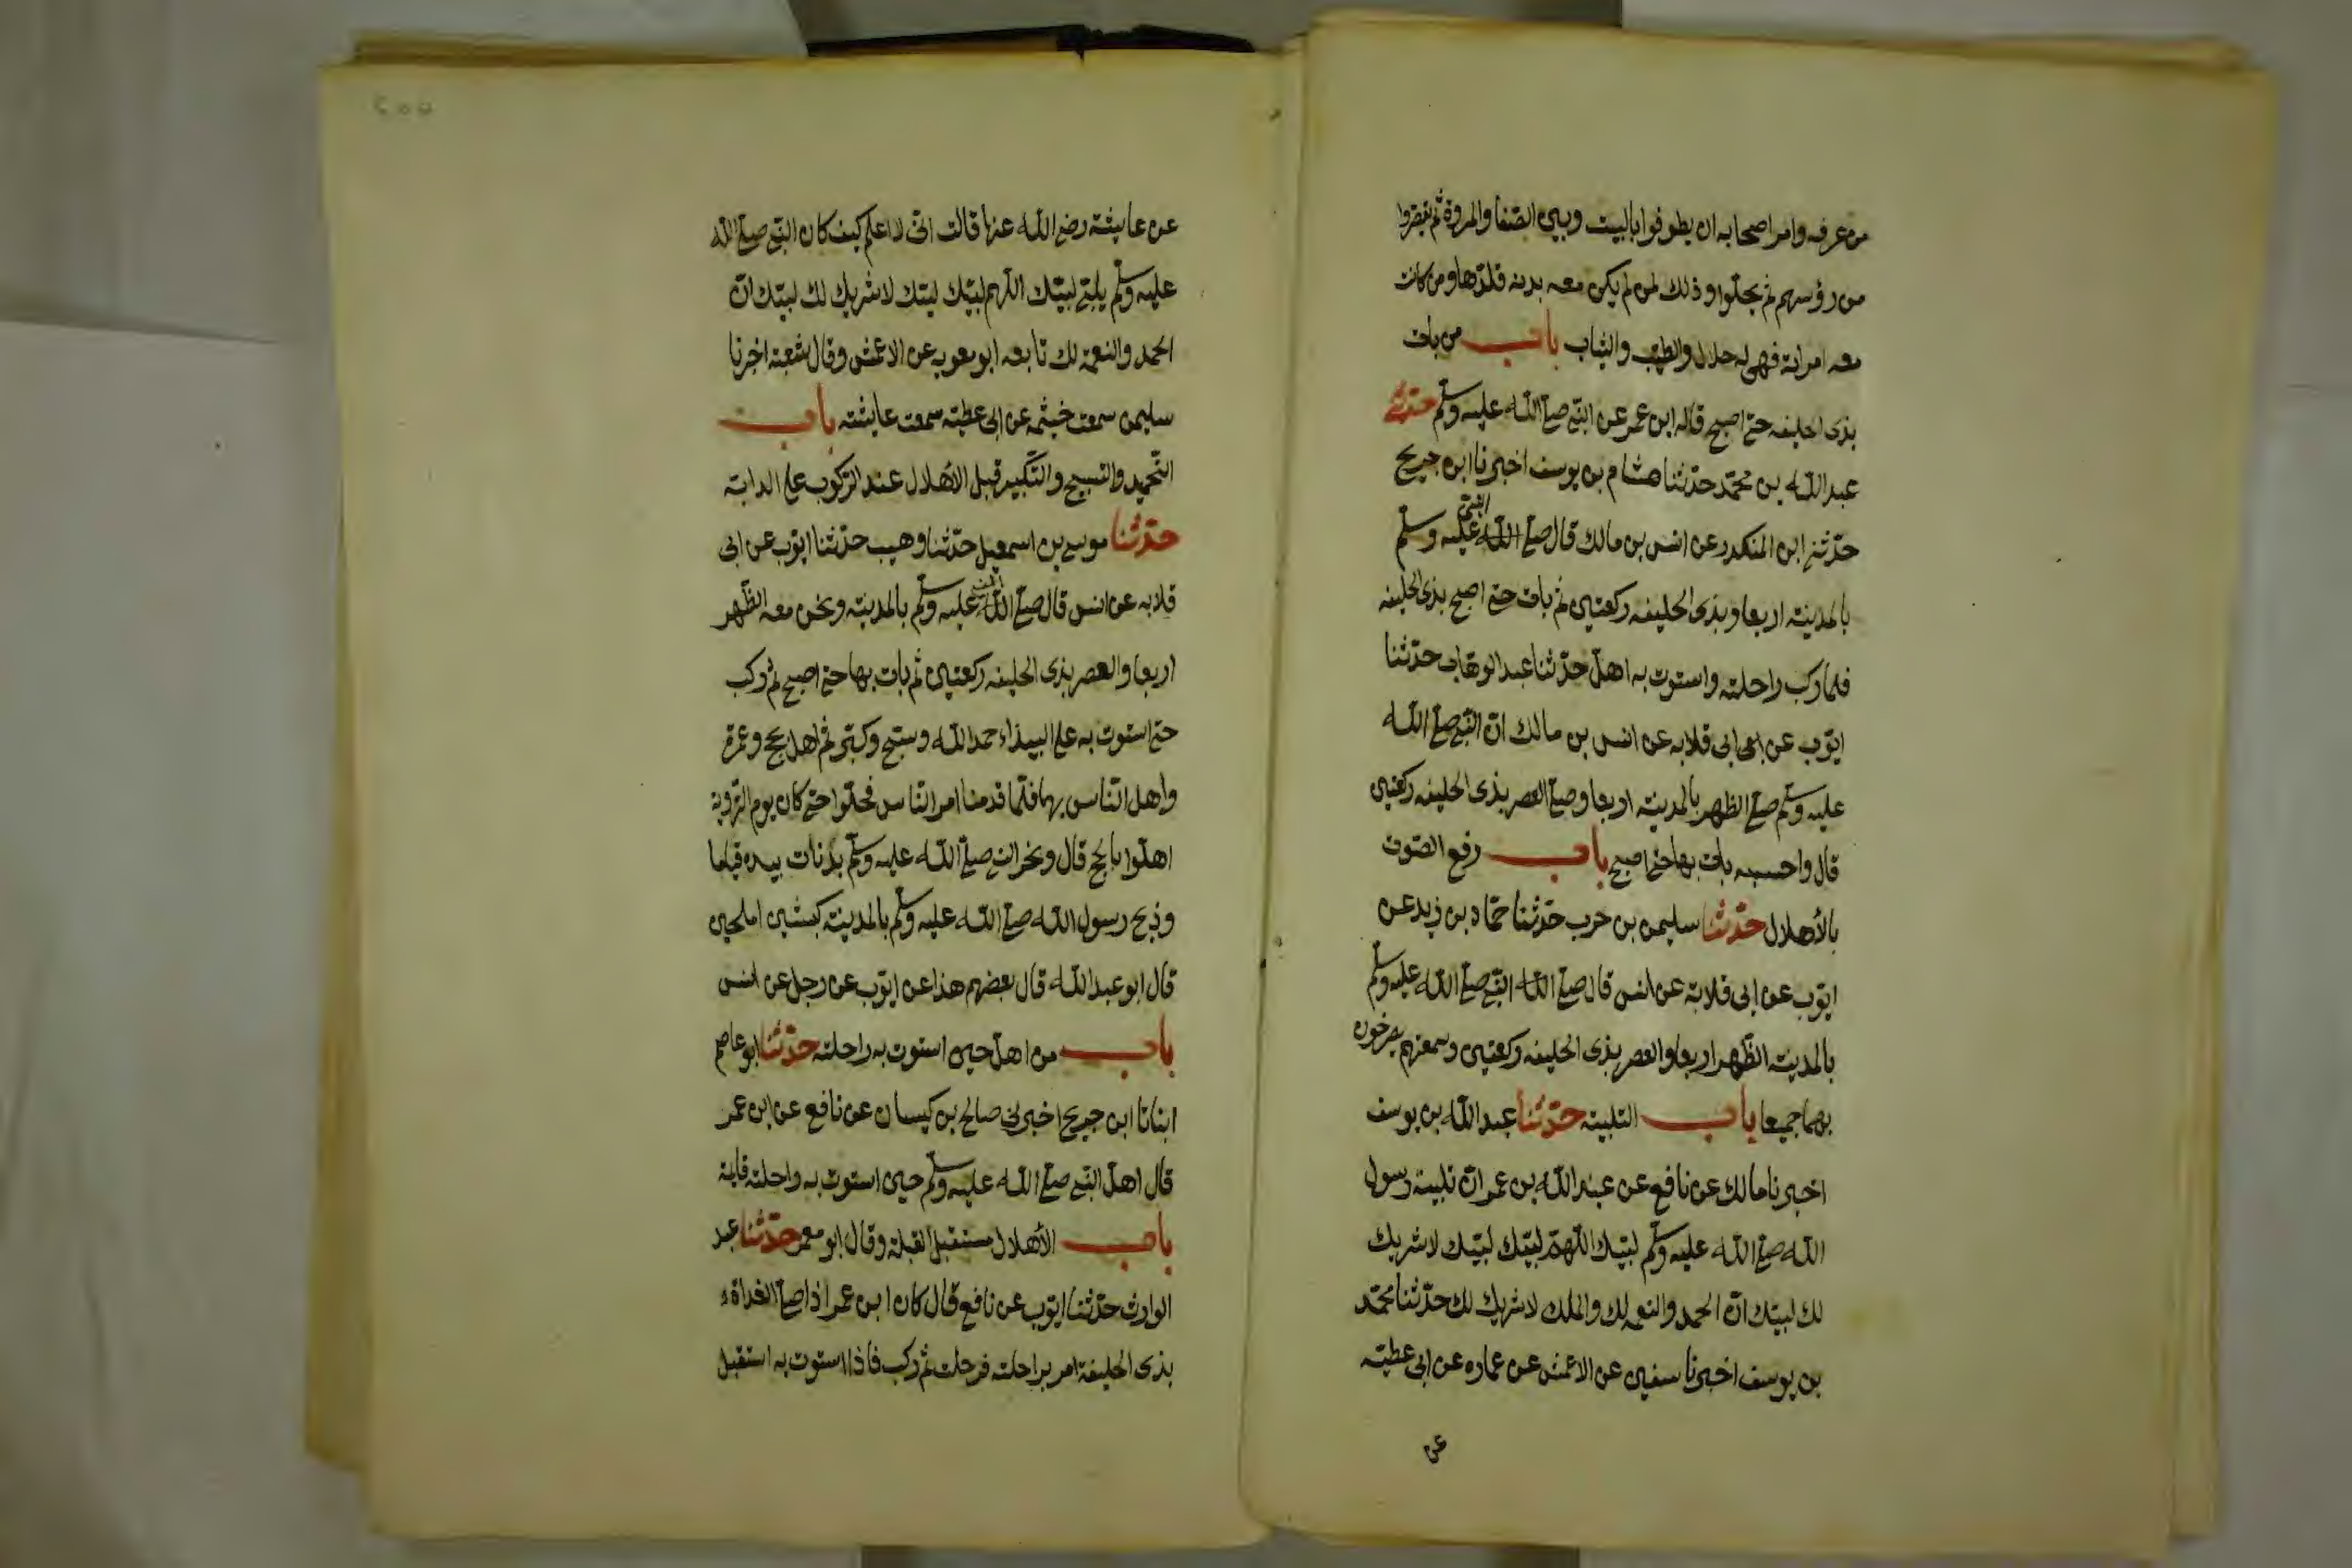 من عرفه وامر اصحابه ان يطوفوا بالبيت وبين الصفا والمروة ثم يقصروا
من رؤسهم ثم يحلوا وذلك لمن لم يكن معه بدنه قلدها ومن كانت
معه امراته فهى له حلال والطيب والثياب باب من بات
بذى الحليفه حتى اصبح قاله ابن عمر عن النبى صلى الله عليه وسلم حدثنى
عبد الله بن محمد حدثنا هشام بن يوسف اخبرنا ابن جريج
حدثنى ابن المنكدر عن انس بن مالك قال صلى النبى عليه وسلم
بالمدينة اربعا وبذى الحليفه ركعتين ثم بات حتى اصبح بذى الحليفه
فلما ركب راحلته واستوت به اهل حدثنا عبد الوهاب حدثنا
ايوب عن ابى قلابه عن انس بن مالك ان النبى صلى الله
عليه وسلم صلى الظهر بالمدينة اربعا وصلى العصر بذى الحليفه ركعتين
قال واحسبه بات بها حتى اصبح باب رفع الصوت
بالأهلال حدثنا سليمن بن حرب حدثنا حماد بن زيد عن
ايوب عن ابى قلابة عن انس قال صلى النبى صلى الله عليه وسلم
بالمدينة الظهر اربعا والعصر بذى الحليفه ركعتين وسمعتهم يصرخون
بهما جميعا باب التلبية حدثنا عبد الله بن يوسف
اخبرنا مالك عن نافع عن عبد الله بن عمر ان تلبية رسول
الله صلى الله عليه وسلم لبيك اللهم لبيك لبيك لا شريك
لك لبيك ان الحمد والنعمه لك والملك لا شريك لك حدثنا محمد
بن يوسف اخبرنا سفين عن الاعمش عن عماره عن ابى عطية
عن
عن عايشة رضى الله عنها قالت انى لاعلم كيف كان النبى صلى الله
عليه وسلم يلبى لبيك اللهم لبيك لبيك لا شريك لك لبيك ان
الحمد والنعمة لك تابعه ابو معويه عن الاعمش وقال شعبة اخبرنا
سليمن سمعت خيثمه عن ابى عطية سمعت عايشة باب
التحميد والتسبيح والتكبير قبل الأهلال عند الركوب على الدابة
حدثنا موسى بن اسمعيل حدثنا وهيب حدثنا ايوب عن ابى
قلابه عن انس قال صلى الله عليه وسلم بالمدينة ونحن معه الظهر
اربعا والعصر بذى الحليفه ركعتين ثم بات بها حتى اصبح ثم ركب
حتى استوت به على البيداء حمد الله وسبح وكبر ثم اهل بحج وعمرة
واهل الناس بهما فلما قدمنا امر الناس فحلوا حتى كان يوم التروية
اهلوا بالحج قال ونحر النبى صلى الله عليه وسلم بدنات بيده قياما
وذبح رسول الله صلى الله عليه وسلم بالمدينة كبشين املحين
قال ابو عبد الله قال بعضهم هذا عن ايوب عن رجل عن انس
باب من اهل حين استوت به راحلته حدثنا ابو عاصم
انبانا ابن جريج اخبرنى صالح بن كيسان عن نافع عن ابن عمر
قال اهل النبى صلى الله عليه وسلم حين استوت به راحلته قايمة
باب الأهلال مستقبل القبلة وقال ابو معمر حدثنا عبد
الوارث حدثنا ايوب عن نافع قال كان ابن عمر اذا صلى الغداة
بذى الحليفة امر براحلته فرحلت ثم ركب فاذا استوت به استقبل